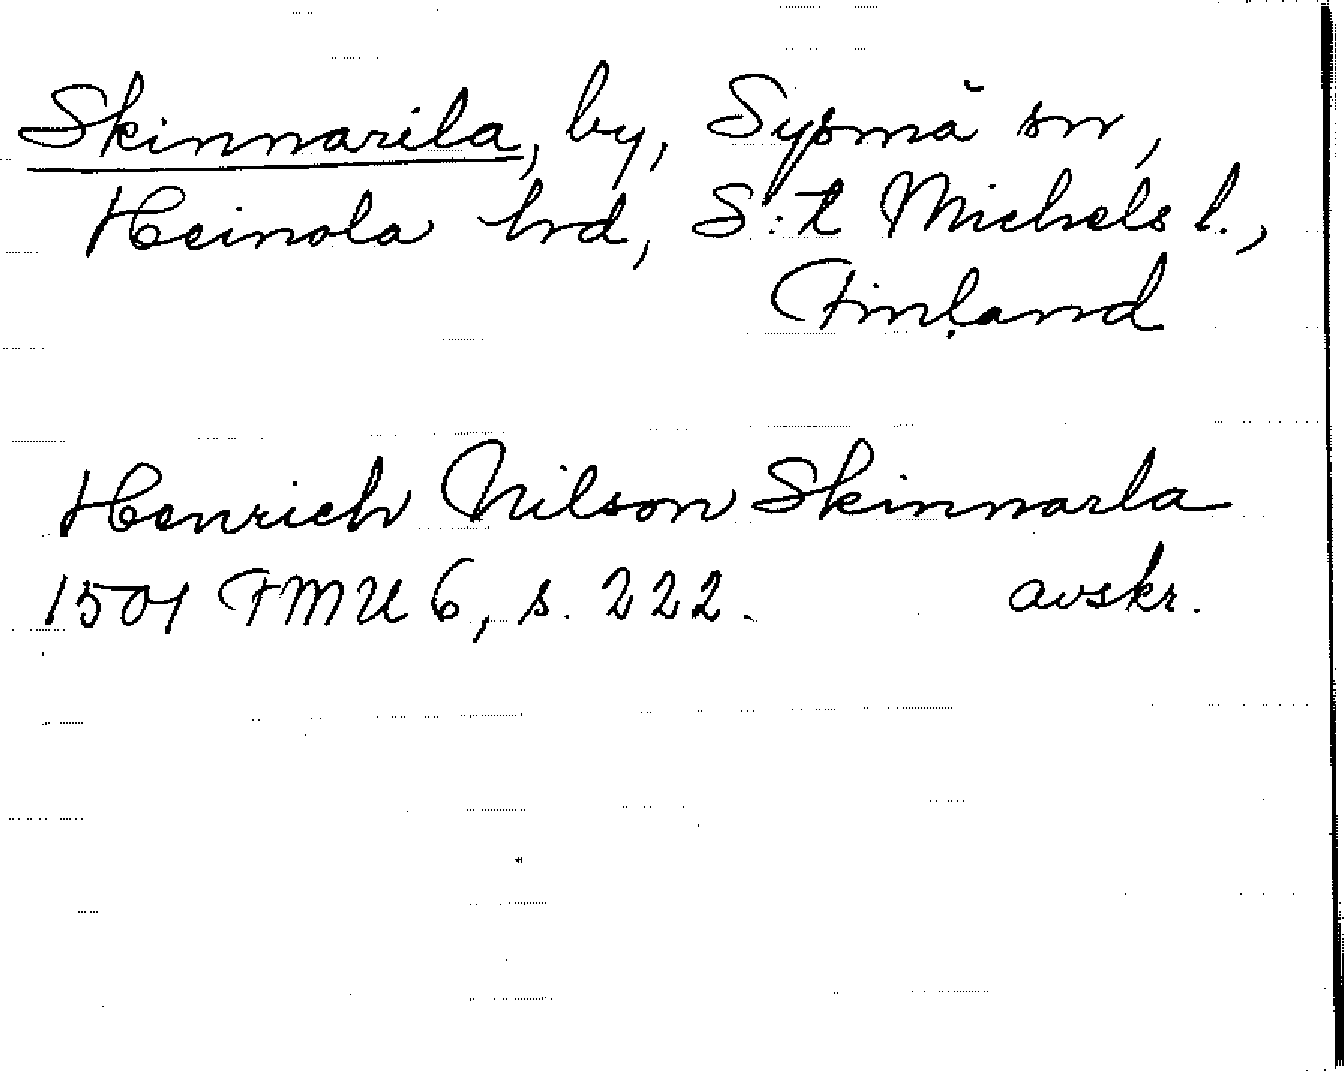 Skinnarila, by, Sysmä sn,
Heinola hrd, S:t Michels l.,
Finland
Henrich Nilson Skinnarla
1501 FMU 6, s. 222. avskr.